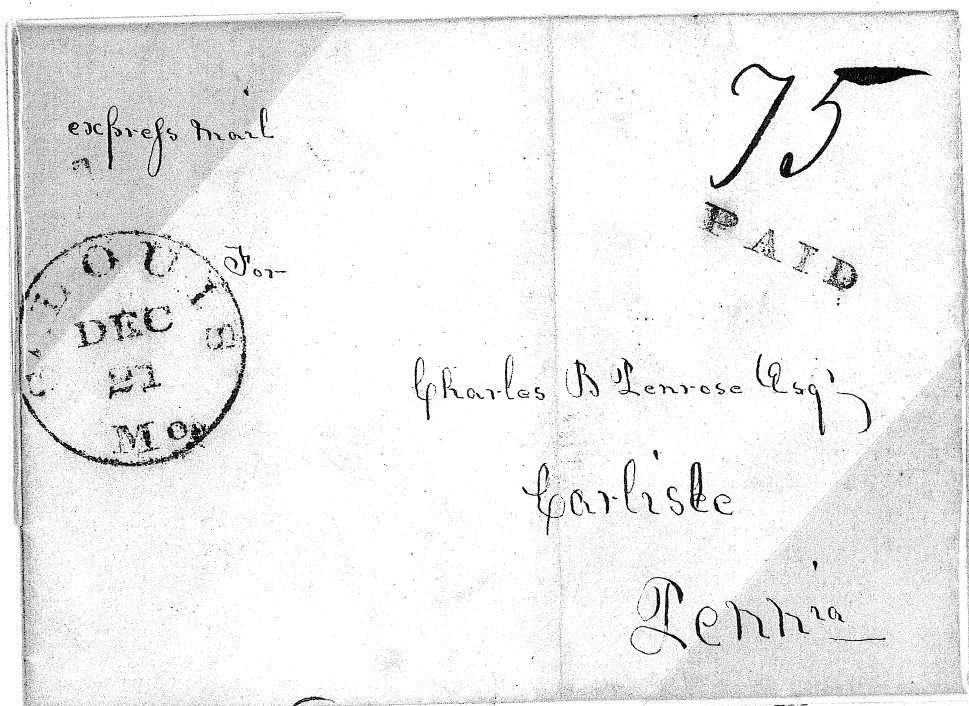 75
express mail
PAID
St LOUIS
DEC
21
Mo.
For
Charles B Penrose Esqr
Carlisle
Pennia